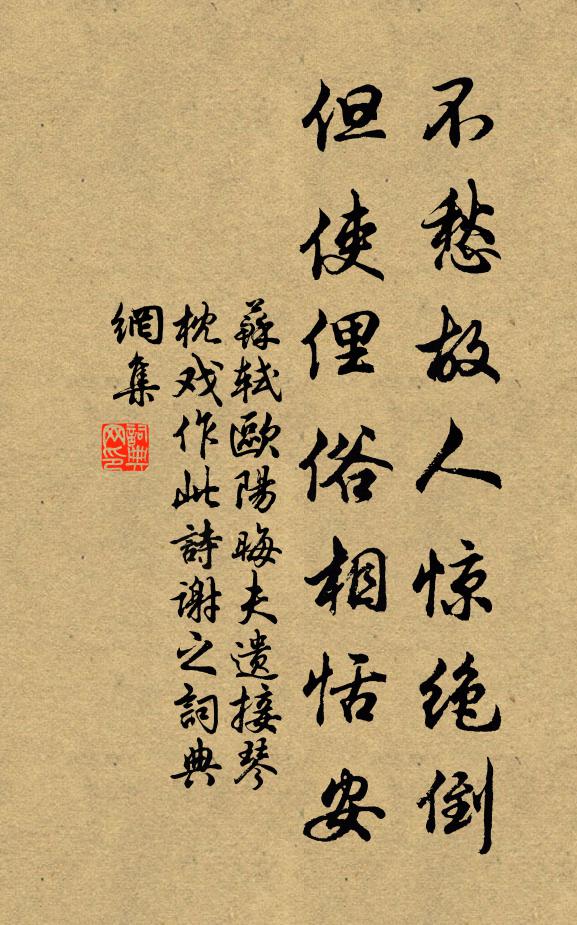 不愁故人惊绝倒
但使俚俗相恬安
蘇軾歐陽晦夫遺接琴
枕戏作此詩谢之詞典
網集
詞典
网印